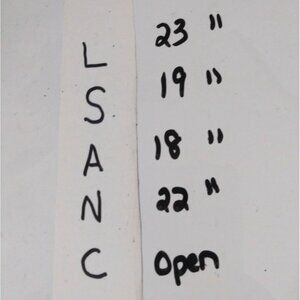 L 23 "
S 19 "
A 18 "
N 22 "
C Open